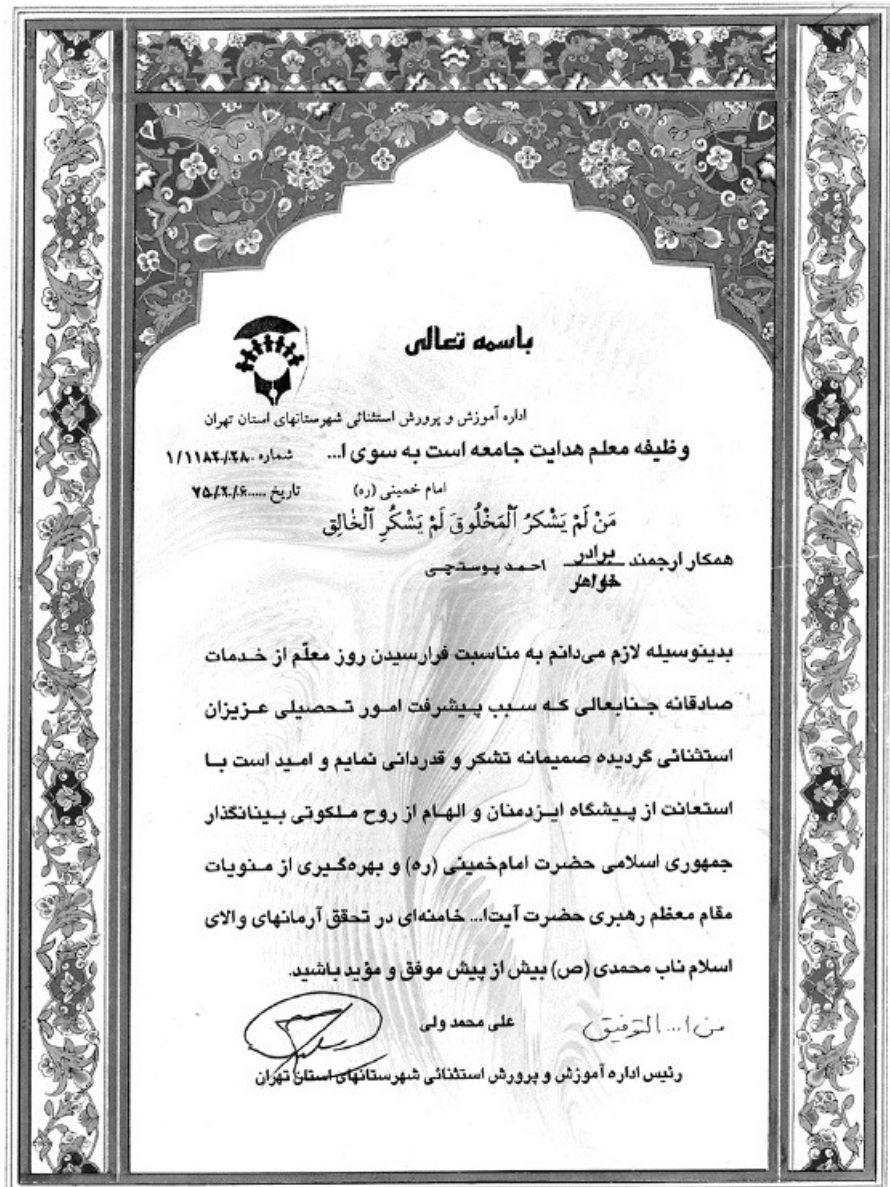 باسمه تعالی
اداره آموزش و پرورش استثنائی شهرستانهای استان تهران
وظیفه معلم هدایت جامعه است به سوی ا...
شماره ۱/۱۱۸۲/۲۸۰
امام خمینی (ره)
تاریخ ۷۵/۲/۶
مَنْ لَمْ يَشْكرُ ٱلْمَخْلُوقَ لَمْ يَشْكُرِ ٱلْخٰالِق
همکار ارجمند برادر احمد پوستچی
خواهر
بدینوسیله لازم می‌دانم به مناسبت فرارسیدن روز معلّم از خدمات
صادقانه جنابعالی که سبب پیشرفت امور تحصیلی عزیزان
استثنائی گردیده صمیمانه تشکر و قدردانی نمایم و امید است با
استعانت از پیشگاه ایزدمنان و الهام از روح ملکوتی بینانگذار
جمهوری اسلامی حضرت امام‌خمینی (ره) و بهره‌گیری از منویات
مقام معظم رهبری حضرت آیت‌ا... خامنه‌ای در تحقق آرمانهای والای
اسلام ناب محمدی (ص) بیش از پیش موفق و مؤید باشید.
من ا... التوفیق
علی محمد ولی
رئیس اداره آموزش و پرورش استثنائی شهرستانهای استان تهران